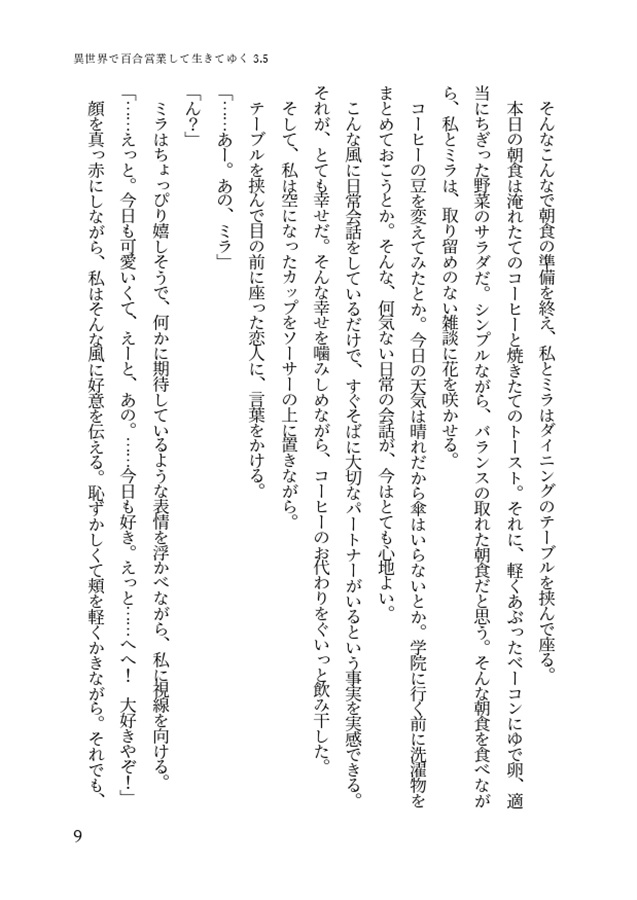 異世界で百合営業して生きてゆく 3.5
そんなこんなで朝食の準備を終え、私とミラはダイニングのテーブルを挟んで座る。
本日の朝食は淹れたてのコーヒーと焼きたてのトースト。それに、軽くあぶったベーコンにゆで卵、適
当にちぎった野菜のサラダだ。シンプルながら、バランスの取れた朝食だと思う。そんな朝食を食べなが
ら、私とミラは、取り留めのない雑談に花を咲かせる。
コーヒーの豆を変えてみたとか。今日の天気は晴れだから傘はいらないとか。学院に行く前に洗濯物を
まとめておこうとか。そんな、何気ない日常の会話が、今はとても心地よい。
こんな風に日常会話をしているだけで、すぐそばに大切なパートナーがいるという事実を実感できる。
それが、とても幸せだ。そんな幸せを噛みしめながら、コーヒーのお代わりをぐいっと飲み干した。
そして、私は空になったカップをソーサーの上に置きながら。
テーブルを挟んで目の前に座った恋人に、言葉をかける。
「……あー。あの、ミラ」
「ん?」
ミラはちょっぴり嬉しそうで、何かに期待しているような表情を浮かべながら、私に視線を向ける。
「……えっと。今日も可愛いくて、えーと、あの。……今日も好き。えっと……へへ！　大好きやぞ！」
顔を真っ赤にしながら、私はそんな風に好意を伝える。恥ずかしくて頬を軽くかきながら。それでも、
9